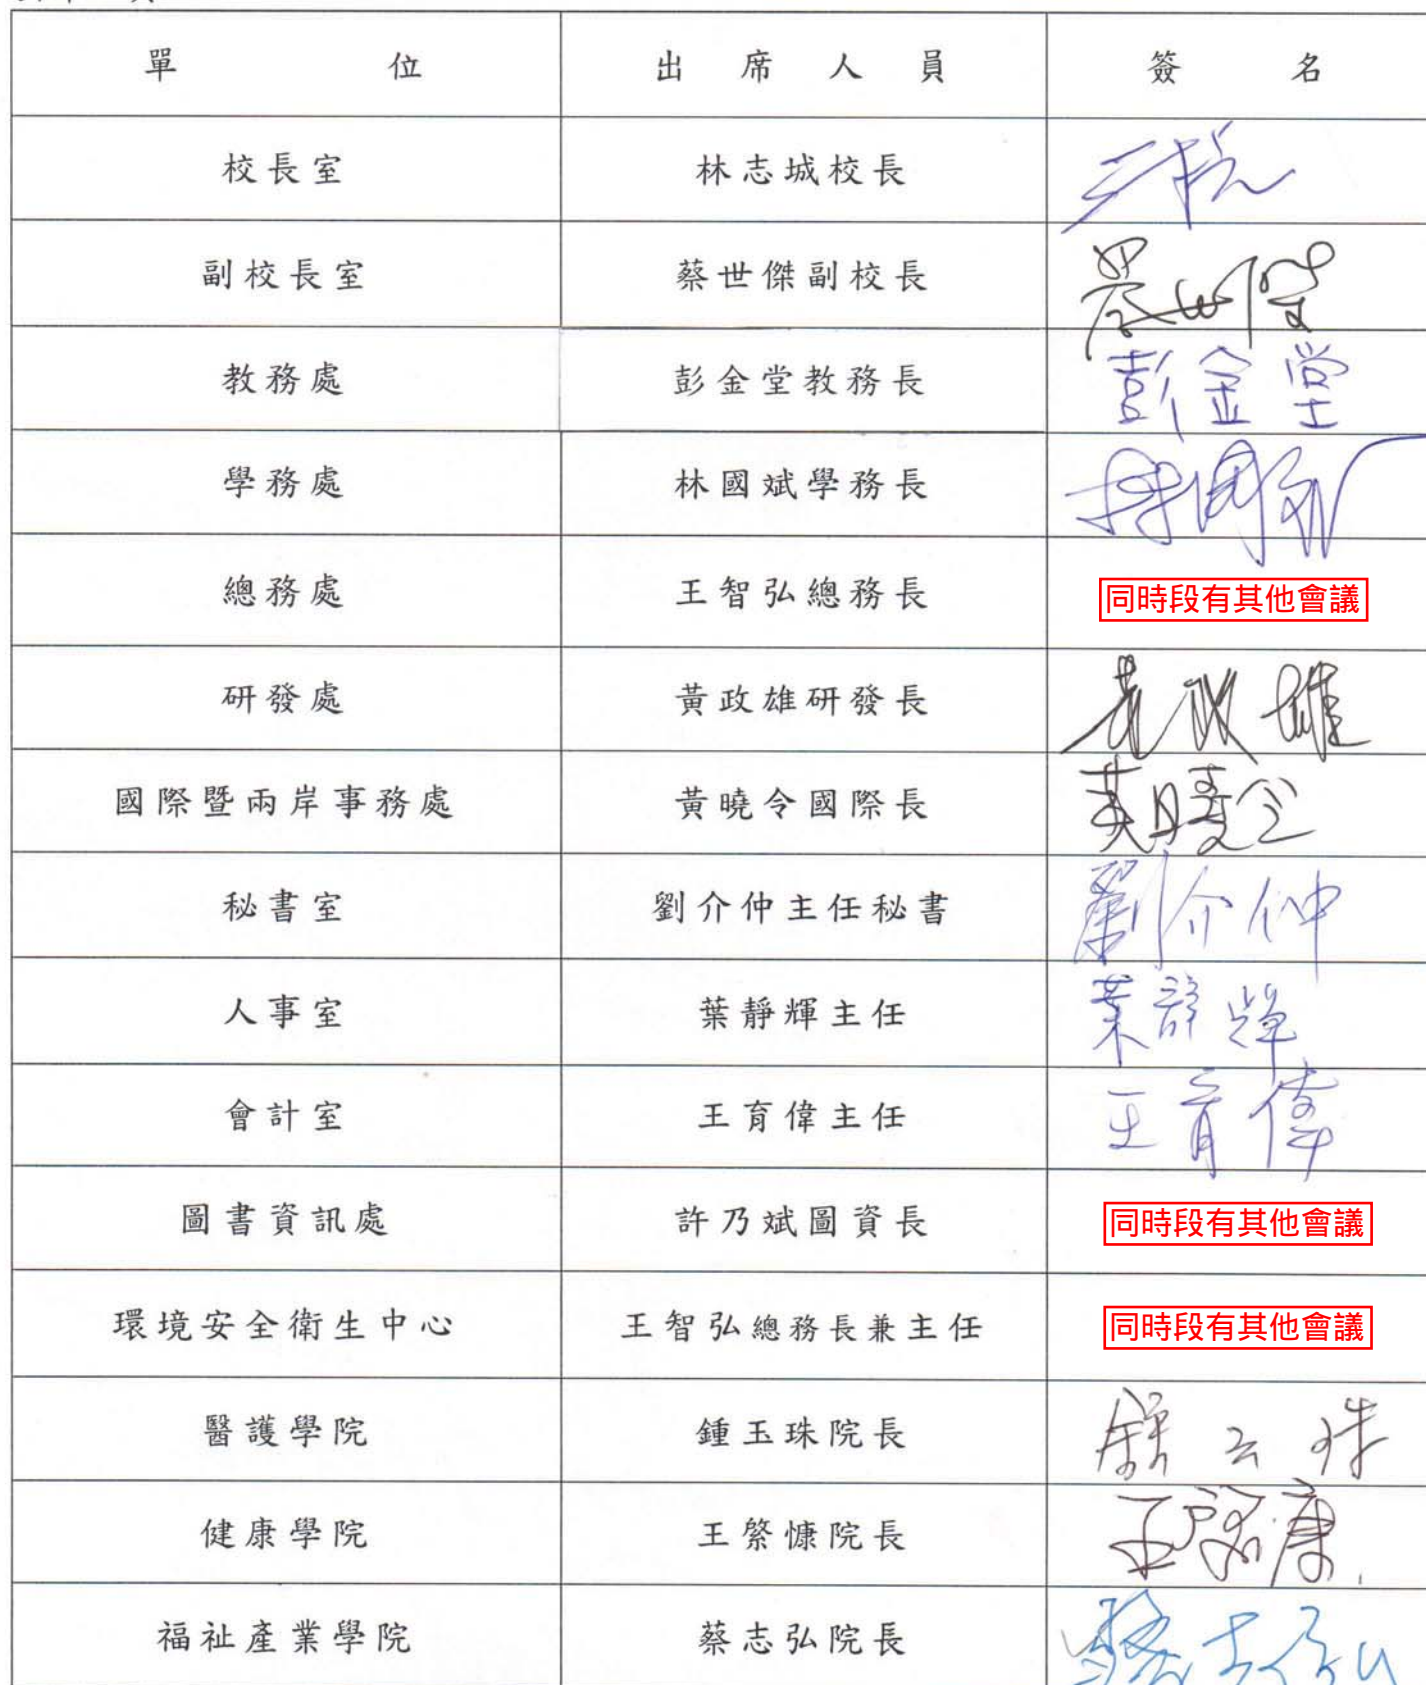 單 位 出 席 人 員 簽 名
校長室 林志城校長
副校長室 蔡世傑副校長
教務處 彭金堂教務長 彭金堂
學務處 林國斌學務長 林國斌
總務處 王智弘總務長 同時段有其他會議
研發處 黃政雄研發長 黃政雄
國際暨兩岸事務處 黃曉令國際長 黃曉令
秘書室 劉介仲主任秘書 劉介仲
人事室 葉靜輝主任 葉靜輝
會計室 王育偉主任 王育偉
圖書資訊處 許乃斌圖資長 同時段有其他會議
環境安全衛生中心 王智弘總務長兼主任 同時段有其他會議
醫護學院 鍾玉珠院長 鍾玉珠
健康學院 王綮慷院長
福祉產業學院 蔡志弘院長 蔡志弘